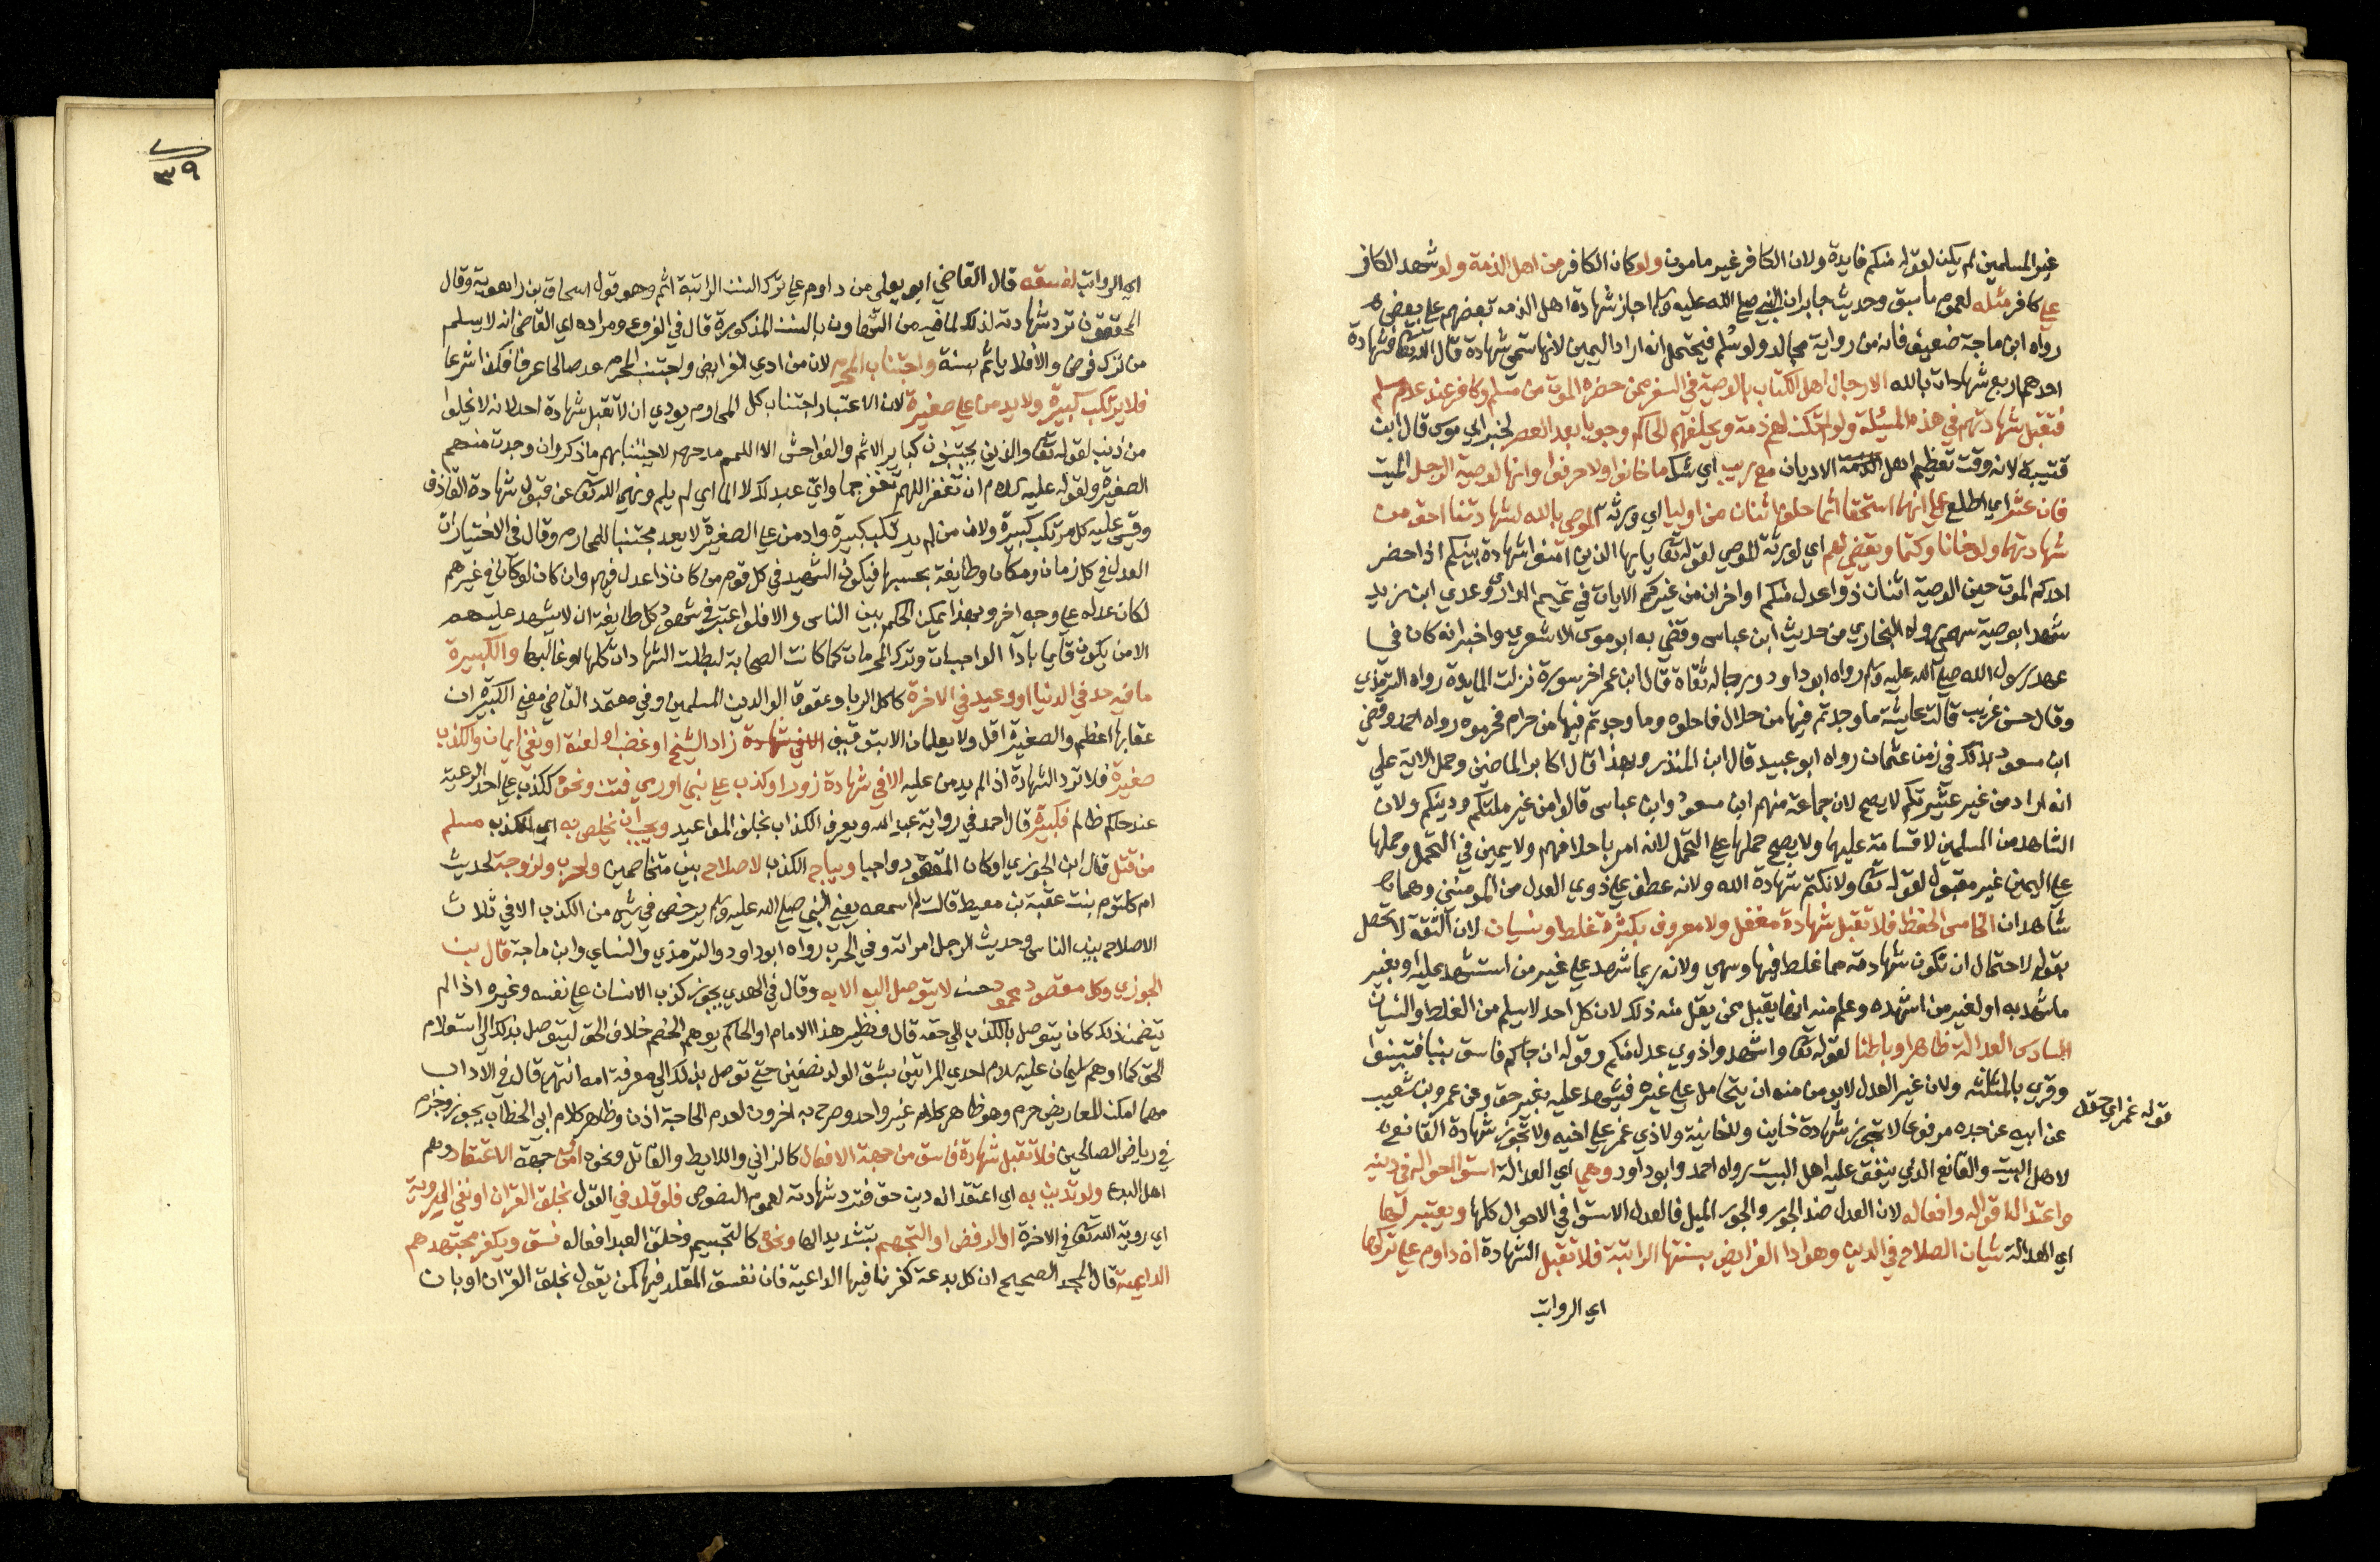 غير المسلمين لم يكن لقوله منكم فايدة ولان الكافر غير مامون ولو كان الكافر من اهل الذمة ولو شهد الكافر
علي كافر مثله لعموم ما سبق وحديث جابر ان النبي صلي الله عليه وسلم اجاز شهادة اهل الذمه بعضهم علي بعض
رواه ابن ماجة ضعيف فانه من رواية مجالد ولو سلم فيحتمل انه اراد اليمين لانها تسمي شهادة قال الله تعالى فشهادة
احدهم اربع شهادات بالله الا رجال اهل الكتاب بالوصية في السفر ممن حضره الموت من مسلم وكافر عند عدم مسلم
فتقبل شهادتهم في هذه المسئلة ولو لم تكن لهم ذمة ويحلفهم الحاكم وجوبا بعد العصر لخبر ابي موسي قال ابن
قتيبة لانه وقت تعظيم اهل الاديان مع ريب اي شك ما خانوا ولا حرفوا وانها لوصية الرجل الميت
فان عثر اي اطلع علي انهما استحقا اثما حلف اثنان من اوليا اي ورثة الموصي بالله لشهادتنا احق من
شهادتهما ولقد خانا وكتما ويقضي لهم اي لورثة الموصي لقوله تعالى يايها الذين امنوا شهادة بينكم اذا حضر
احدكم الموت حين الوصية اثنان ذوا عدل منكم او اخران من غيركم الايات في تميم الداري وعدي ابن زيد
شهدا بوصية سهمي رواه البخاري من حديث ابن عباس وقضي به ابو موسي الاشعري واخبر انه كان في
عهد رسول الله صلي الله عليه وسلم رواه ابو داود ورجاله ثقاة قال ابن عمر اخر سورة نزلت المايدة رواه الترمذي
وقال حسن غريب قالت عايشة ما وجدتم فيها من حلال فاحلوه وما وجدتم فيها من حرام فحرموه رواه احمد وقضي
ابن مسعود بذلك في زمن عثمان رواه ابو عبيد قال ابن المنذر وبهذا قال اكابر الماضين وحمل الاية علي
انه اراد من غير عشيرتكم لا يصح لان جماعة منهم ابن مسعود وابن عباس قالوا من غير ملتكم ودينكم ولان
الشاهد من المسلمين لا قسامة عليهما ولا يصح حملها علي التحمل لانه امر باحلافهم ولا يمين في التحمل وحملها
علي اليمين غير مقبول لقوله تعالى ولا نكتم شهادة الله ولانه عطف علي ذوي العدل من المومنين وهما
شاهدان الخامس الحفظ فلا تقبل شهادة مغفل ولا معروف بكثرة غلط ونسيان لان الثقة لا تحصل
بقوله لاحتمال ان تكون شهادته مما غلط فيها وسهي ولانه ربما شهد علي غير من استشهد عليه او بغير
ما شهد به او لغير من اشهده وعلم منه انها تقبل ممن يقل منه ذلك لان كل احد لا يسلم من الغلط والنسيان
السادس العدالة ظاهرا وباطنا لقوله تعالى واشهدوا ذوي عدل منكم وقوله ان جاكم فاسق بنبا فتبينوا
وقري بالمثلثة ولان غير العدل لا يومن منه ان يتحامل علي غيره فيشهد عليه بغير حق وعن عمرو بن شعيب
عن ابيه عن جده مرفوعا لا تجوز شهادة خاين ولا خاينة ولا ذي غمر علي اخيه ولا تجوز شهادة القانع
لاهل البيت والقانع الذي ينفق عليه اهل البيت رواه احمد وابو داود وهي اي العدالة استوا احواله في دينه
واعتدال اقواله وافعاله لان العدل ضد الجور والجور الميل فالعدل الاستوا في الاحوال كلها ويعتبر لها
اي العدالة شيان الصلاح في الدين وهو ادا الفرايض بسننها الراتبة فلا تقبل الشهادة ان داوم علي تركها
اي الرواتب
قوله غمر اي حقد
٣٩
اي الرواتب لفسقه قال القاضي ابو يعلي من داوم علي ترك السنن الراتبة اثم وهو قول اسحاق بن راهويه وقال
المحققون ترد شهادته لذلك لما فيه من التهاون بالسنن المذكورة قال في الفروع ومراده اي القاضي انه لا يسلم
من ترك فرض والا فلا ياثم بسنة واجتناب المحرم لان من ادي الفرايض واجتنب المحرم عد صالحا عرفا فكذا شرعا
فلا يرتكب كبيرة ولا يدمن علي صغيرة لان الاعتبار اجتناب كل المحارم يودي ان لا تقبل شهادة احد لانه لا يخلوا
من ذنب لقوله تعالى والذين يجتنبون كباير الاثم والفواحش الا اللمم مدحهم لاجتنابهم ما ذكر وان وجدت منهم
الصغيرة ولقوله عليه السلام ان تغفر اللهم تغفر جما واي عبد لك لا الما اي لم يلم ونهي الله تعالى عن قبول شهادة القاذف
وقيس عليه كل مرتكب كبيرة ولان من لم يرتكب كبيرة وادمن علي الصغيرة لا يعد مجتنبا للمحارم وقال في الاختيارات
العدل في كل زمان ومكان وطايفة بحسبها فيكون الشهيد في كل قوم من كان ذا عدل فيهم وان كان لو كان في غيرهم
لكان عدله علي وجه اخر وبهذا يمكن الحكم بين الناس والا فلو اعتبر في شهود كل طايفة ان لا يشهد عليهم
الا من يكون قايما باداء الواجبات وترك المحرمات كما كانت الصحابة لبطلت الشهادات كلها او غالبها والكبيرة
ما فيه حد في الدنيا او وعيد في الاخرة كاكل الربا وعقوق الوالدين المسلمين وفي معتمد القاضي معني الكبيرة ان
عقابها اعظم والصغيرة اقل ولا يعلمان الا بتوقيف زاد الشيخ او غضب او لعنة او نفي ايمان والكذب
صغيرة فلا ترد الشهادة اذا لم يدمن عليه الا في شهادة زور او كذب علي نبي او رمي فتن ونحوه ككذب علي احد الرعية
عند حاكم ظالم فكبيرة قال احمد في رواية عبد الله ويعرف الكذاب بخلف المواعيد ويجب ان يخلص به اي الكذب مسلم
من قتل قال ابن الجوزي او كان المقصود واجبا ويباح الكذب لاصلاح بين متخاصمين ولحرب ولزوجة لحديث
ام كلثوم بنت عقبة بن معيط قالت لم اسمعه يعني النبي صلي الله عليه وسلم يرخص في شي من الكذب الا في ثلاث
الاصلاح بين الناس وحديث الرجل امراته وفي الحرب رواه ابو داود والترمذي والنساي وابن ماجة قال بن
الجوزي وكل مقصود محمود حسن لا يتوصل اليه الا به وقال في الهدي يجوز كذب الانسان علي نفسه وغيره اذا لم
يتضمن ذلك كان يتوصل بالكذب الي حقه قال ونظير هذا الامام او الحاكم يوهم الخصم خلاف الحق ليتوصل بذلك الي استعلام
الحق كما اوهم سليمان عليه السلام احدي المراتين بشق الولد نصفين حتي توصل بذلك الي معرفة امه انتهي قال في الاداب
مهما امكن المعاريض حرم وهو ظاهر كلام غير واحد وصرح به اخرون لعدم الحاجة اذن وظاهر كلام ابي الخطاب يجوز وجزم
في رياض الصالحين فلا تقبل شهادة فاسق من جهة الافعال كالزاني واللايط والقاتل ونحوه او من جهة الاعتقاد وهم
اهل البدع ولو تدين به اي اعتقد انه دين حق فترد شهادته لعموم النصوص فلو قلد في القول بخلق القران او نفي الروية
اي روية الله تعالى في الاخرة او الرفض او التجهم بتشديد الها ونحوه كالتجسيم وخلق العبد افعاله فسق ويكفر مجتهدهم
الداعية قال المجد الصحيح ان كل بدعة كفرنا فيها الداعية فان نفسق المقلد فيها كمن يقول بخلق القران او بان